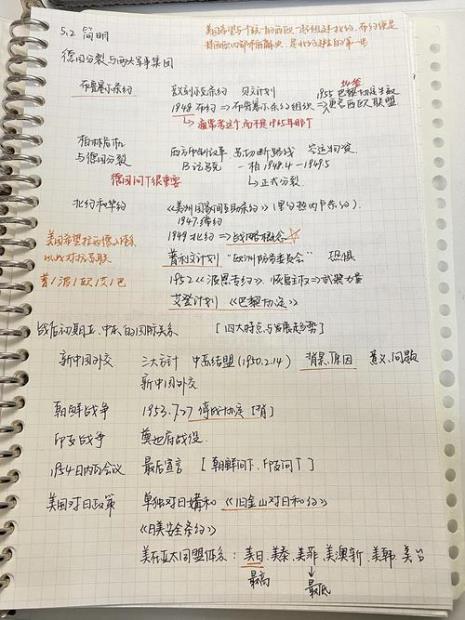 5.2 简明
美国希望与个联一的西欧一起组建北约，布约便是
其西欧内部矛盾解决，是北约建立的第一步
德国分裂与两大军事集团
布鲁塞尔条约 敦刻尔克条约 贝文计划 1955 巴黎协定生效
1948 布约 => 布鲁塞尔条约组织 => 更名西欧联盟
↳ 通常考这个而不是1955年那个
柏林危机 西方币制改革 苏切断路线 空运物资
与德国分裂 B记马克 一柏 1948.4-1949.5
德国问T很重要 ↳ 正式分裂
北约和华约 《美洲国家间互助条约》(里约热内卢条约)
1947.缔约
1949 北约 => 战略概念 ☆
美国希望拉拢德入体系
以此对抗苏联 普利文计划 "欧洲防务委员会" 恐惧
普/波/艾/巴 1952《波恩专约》 恢复主权 => 武装力量
艾登计划 《巴黎协定》
战后初期美、中、东的国际关系 [四大特点与发展趋势]
新中国外交 三大方针 中苏结盟 (1950.2.14) 背景.原因 意义.问题
新中国外交
朝鲜战争 1953.7.27 停战协定 [背]
印支战争 奠边府战役
1954日内瓦会议 最后宣言 [朝鲜问T、印支问T]
美国对日政策 单独对日媾和 《旧金山对日和约》
《日美安全条约》
美在亚太同盟体系: 美日、美泰、美菲、美澳新、美韩、美台
最高 最低